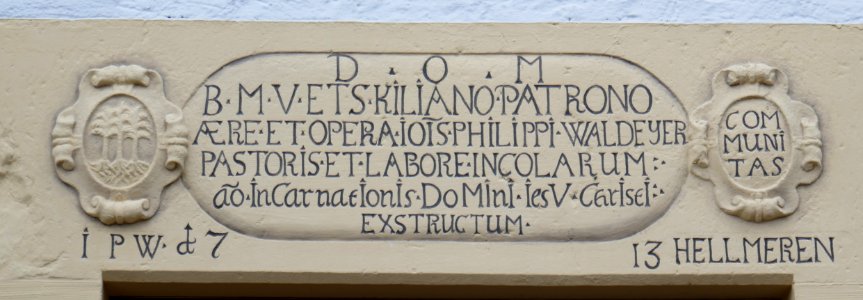 D. O. M
B·M·V·ET S·KILIANO PATRONO
ÆRE·ET·OPERA·IOIS·PHILIPPI·WALDEYER
PASTORIS·ET·LABORE·INCOLARUM·
aō·InCarnationis·DoMini·iesV·Christi·
EXSTRUCTUM·
COM
MUNI
TAS
I P W. d 7
13 HELLMEREN